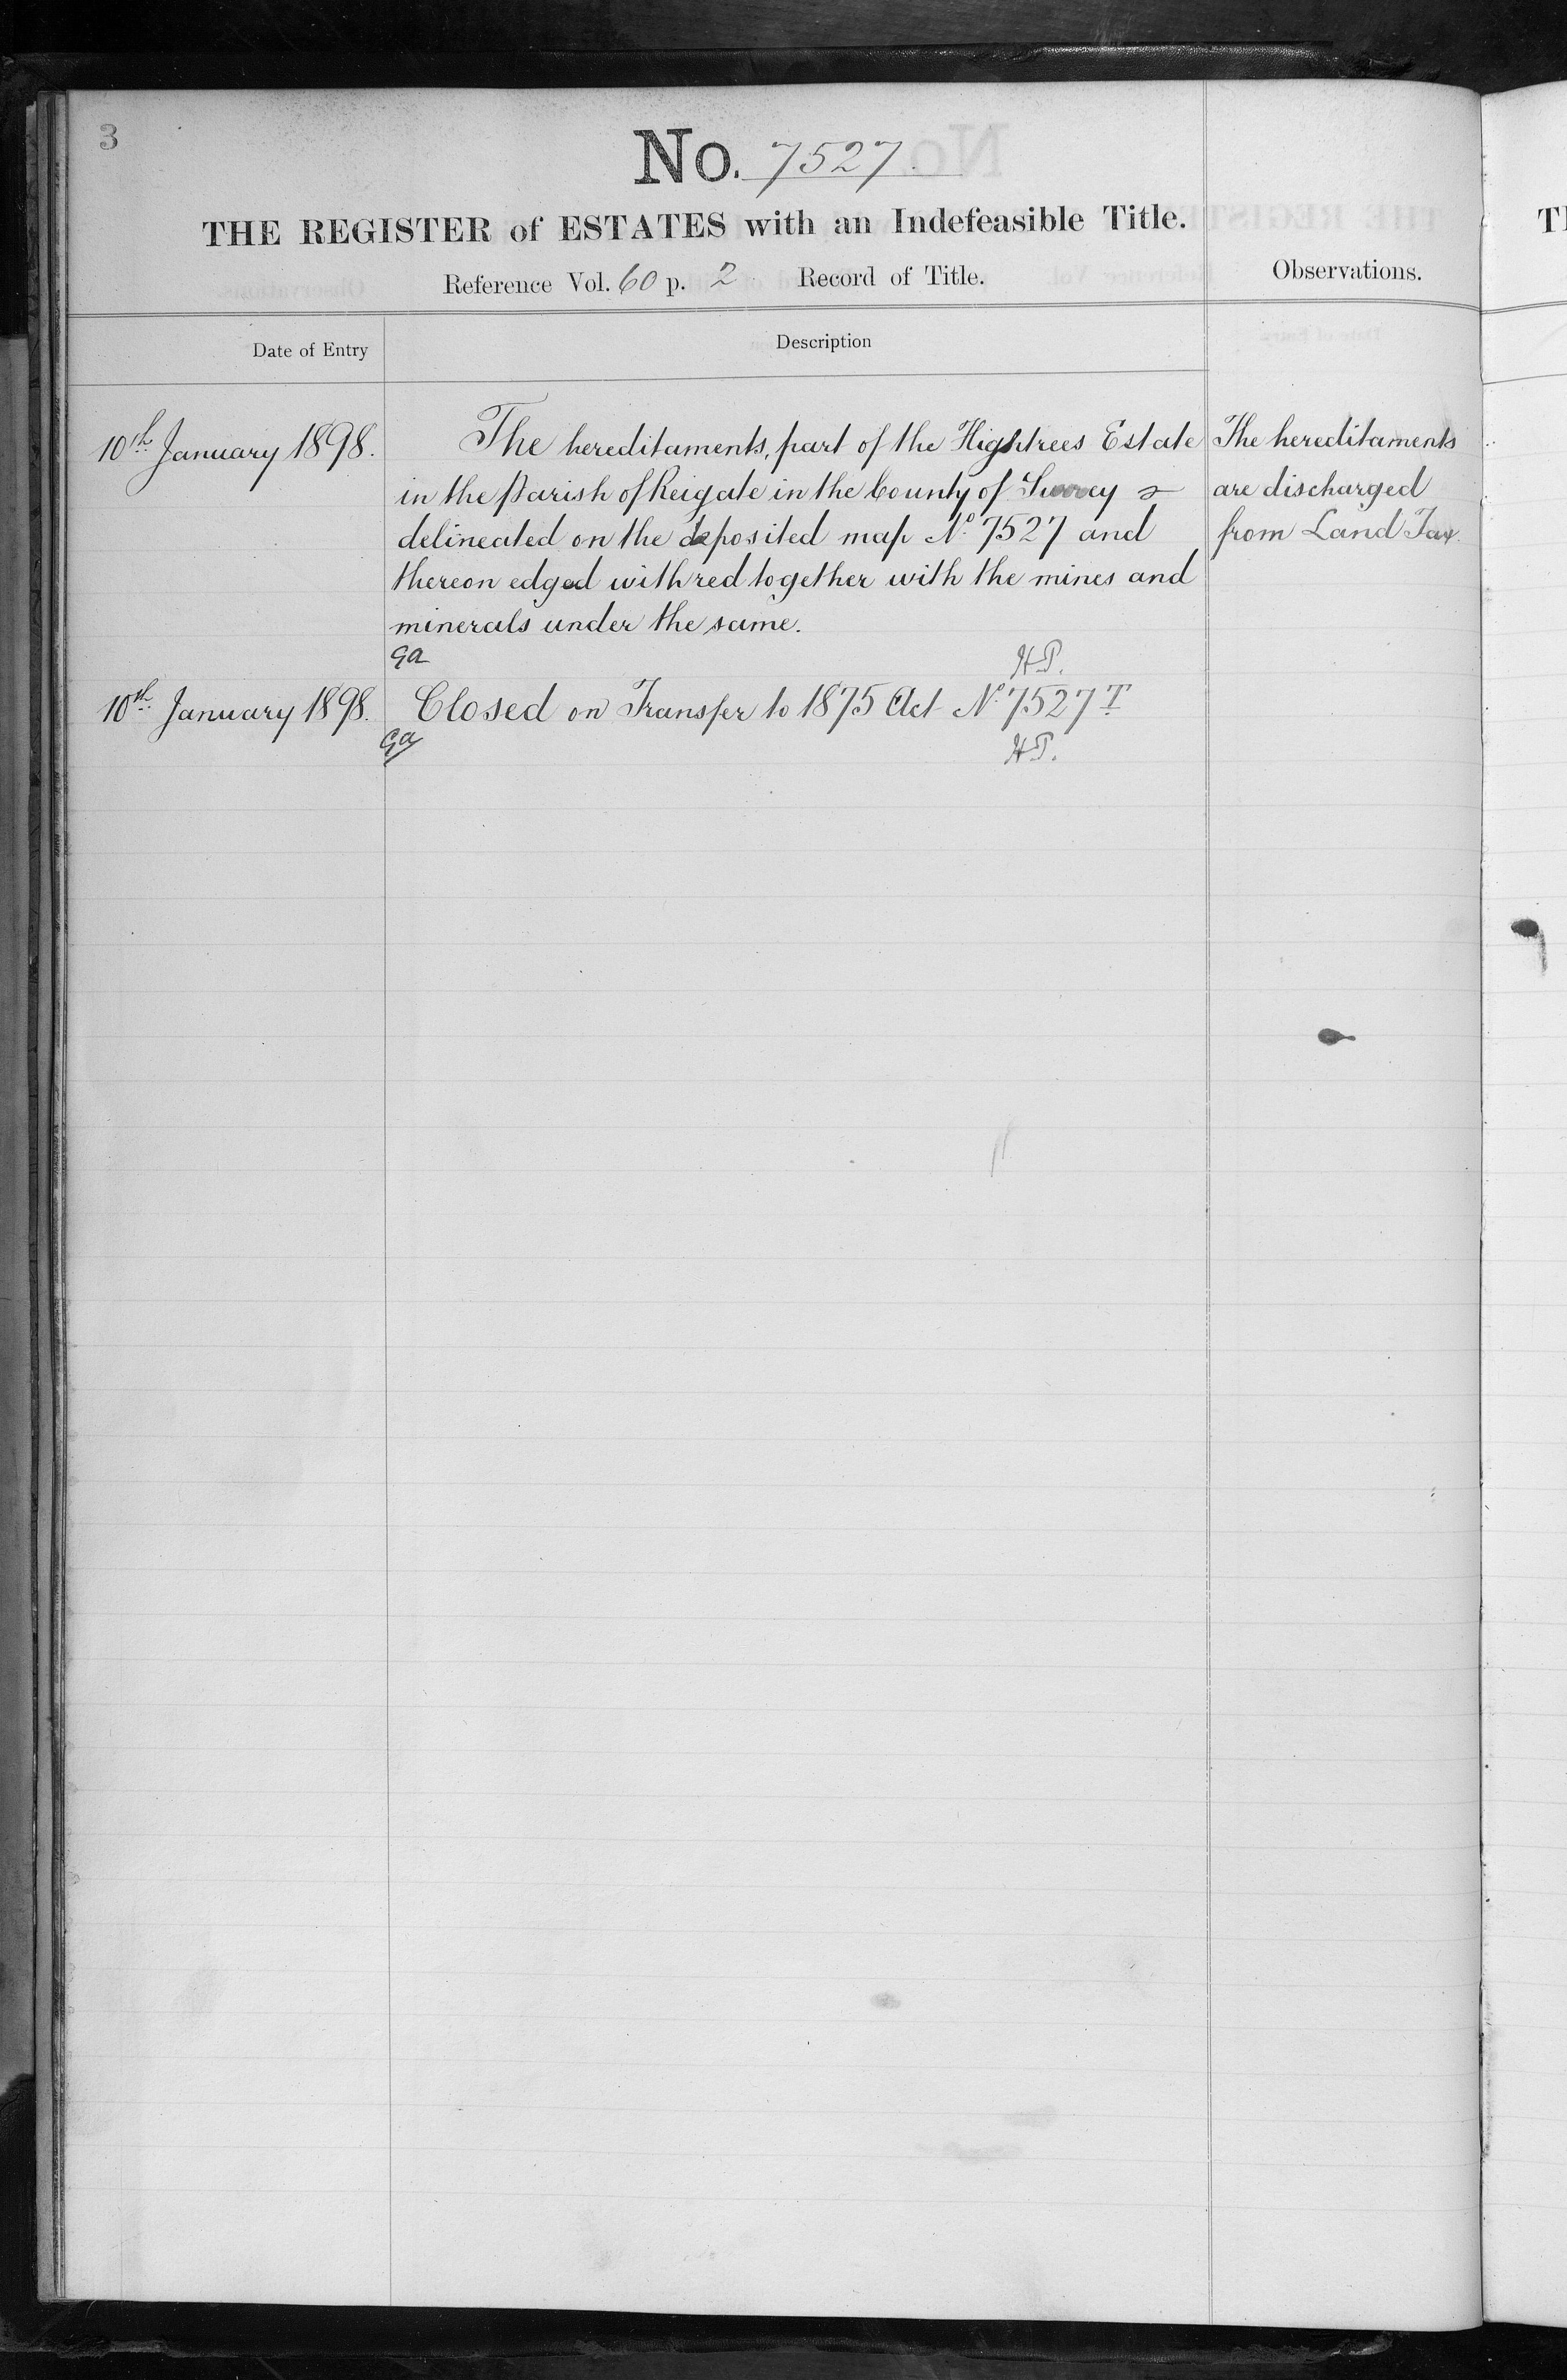 3
No. 7527.
THE REGISTER of ESTATES with an Indefeasible Title.
Reference Vol. 60 p. 2 Record of Title.
Observations.
Date of Entry
Description
10th January 1898.
The hereditaments, part of the Hightrees Estate
in the Parish of Reigate in the County of Surrey
delineated on the deposited map No 7527 and
thereon edged with red together with the mines and
minerals under the same.
The hereditaments
are discharged
from Land Tax.
Ga
H.P.
10th January 1898.
Closed on Transfer to 1875 Act No 7527 T
Ga
H.P.